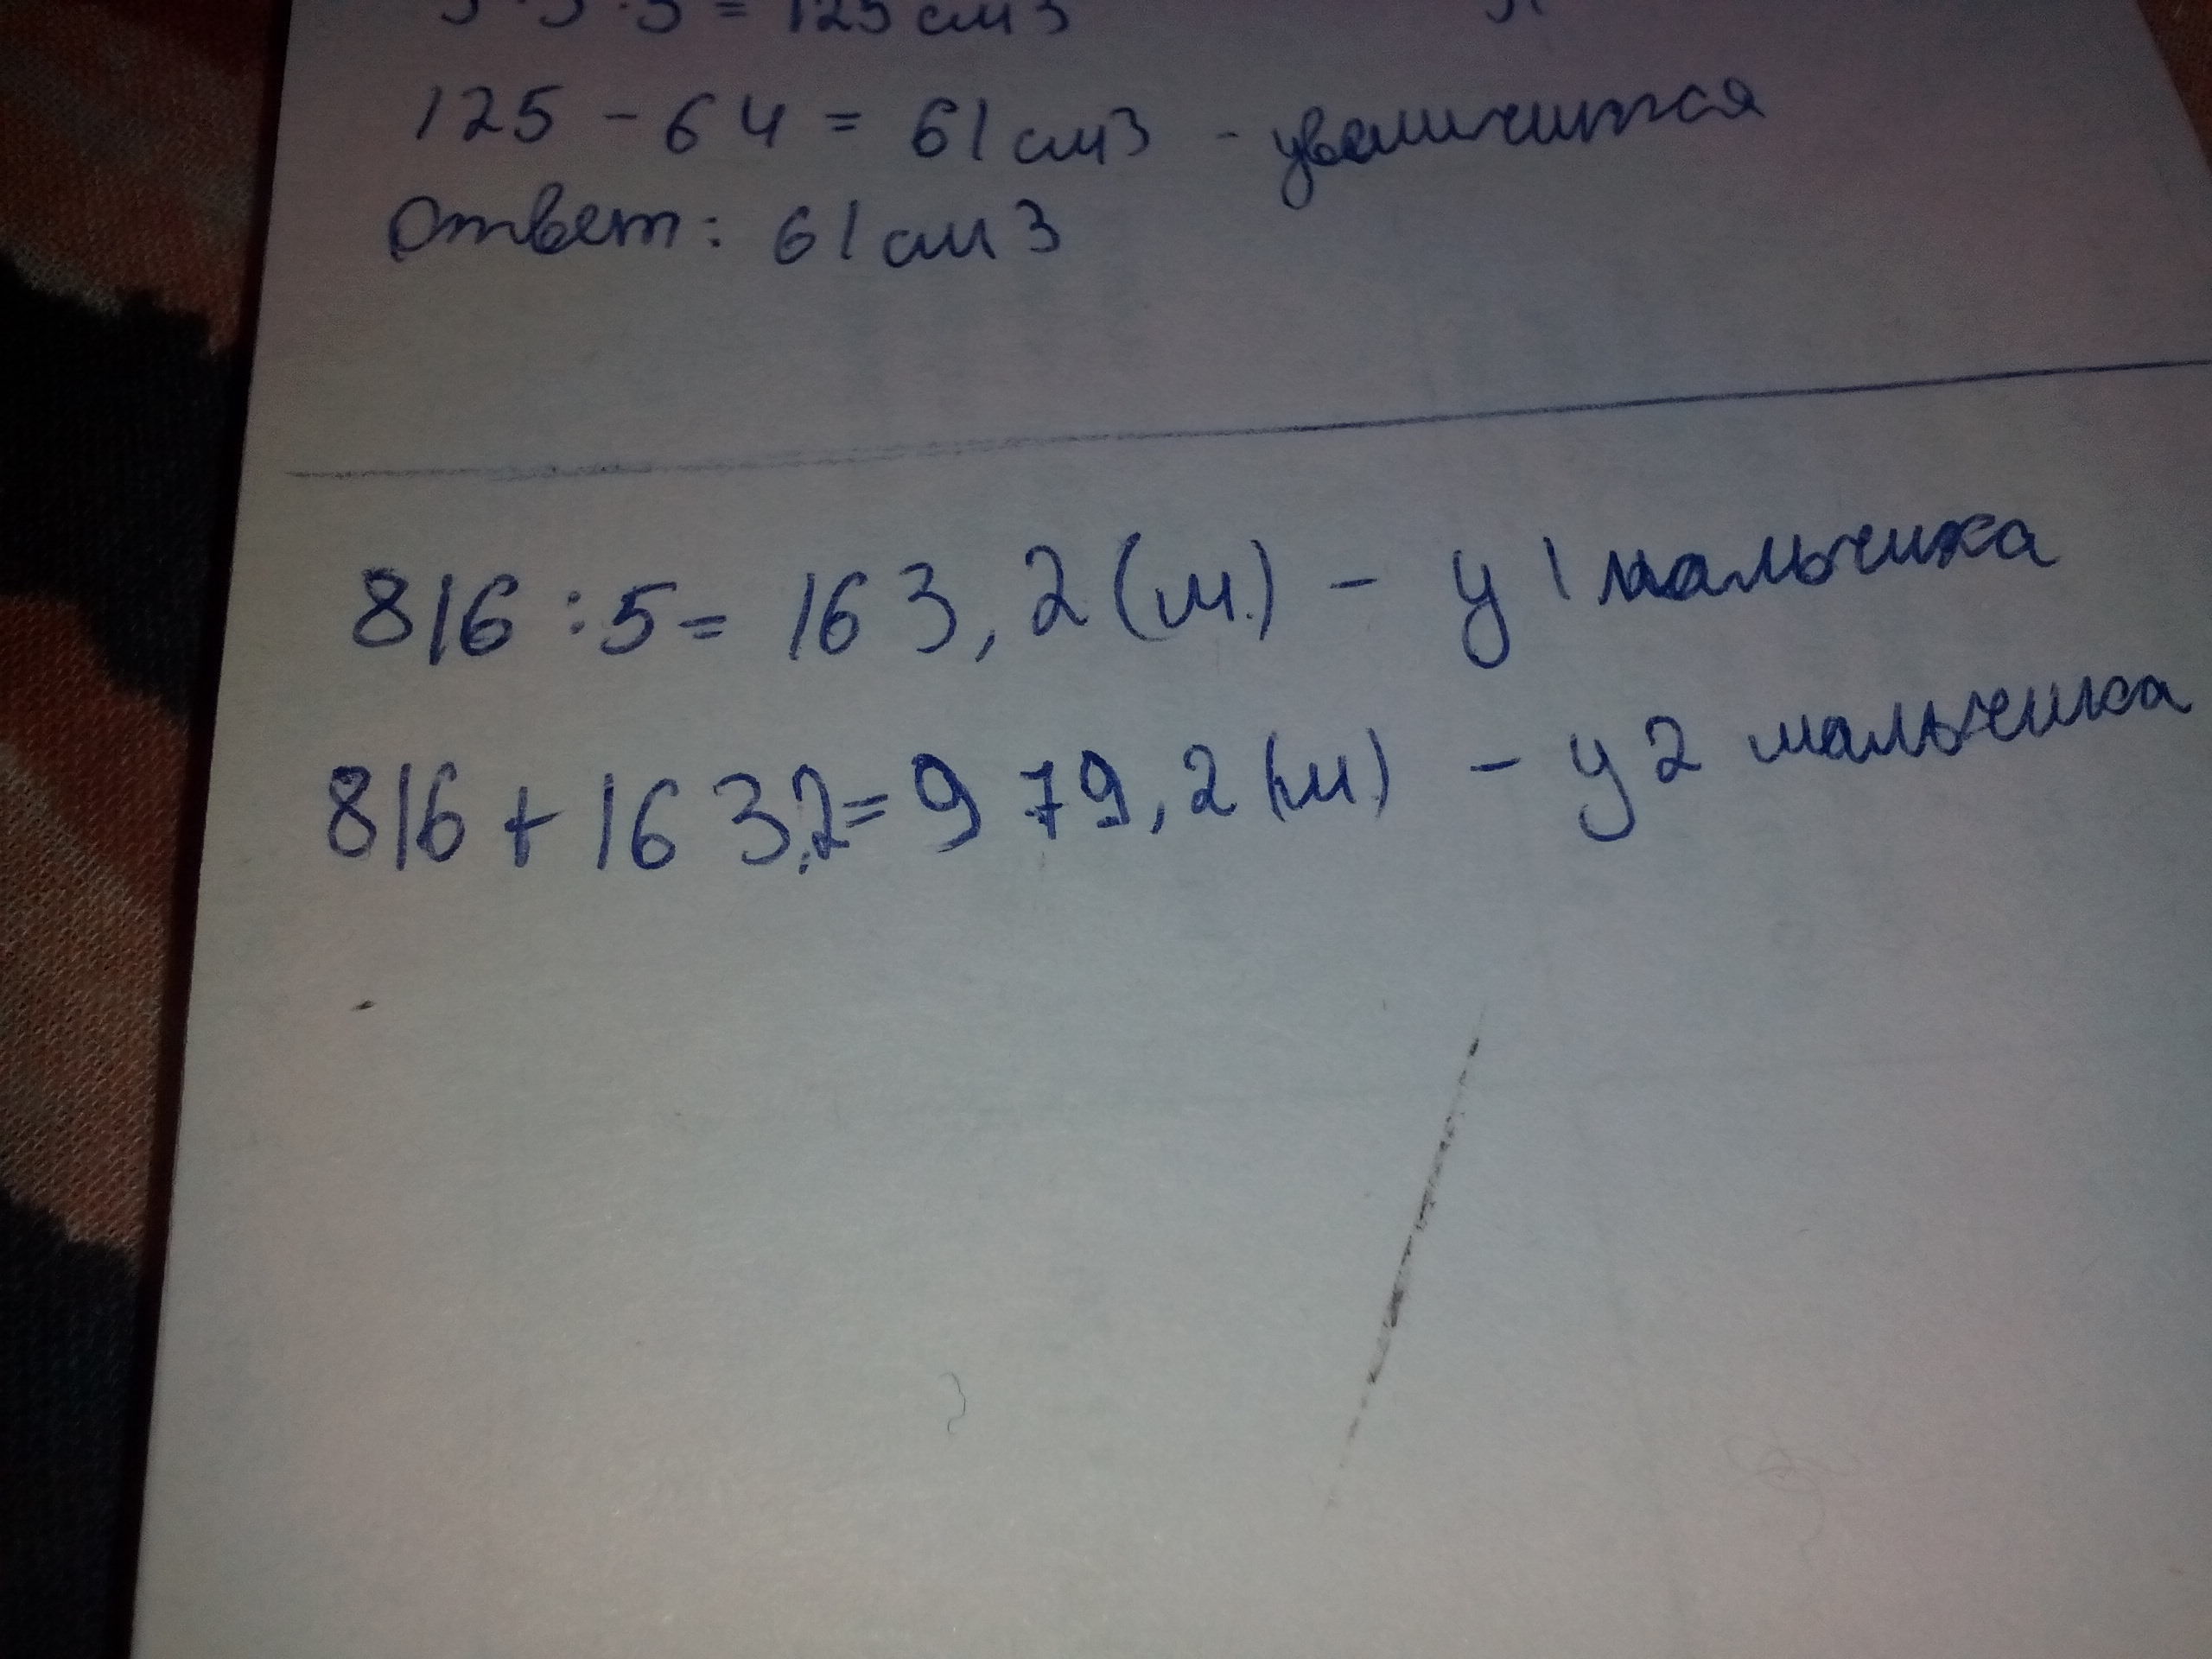 5·5·5 = 125 см3
125 - 64 = 61 см3 - увеличится
Ответ: 61 см3
816 : 5 = 163,2 (м.) - у 1 мальчика
816 + 163,2 = 979,2 (м) - у 2 мальчика